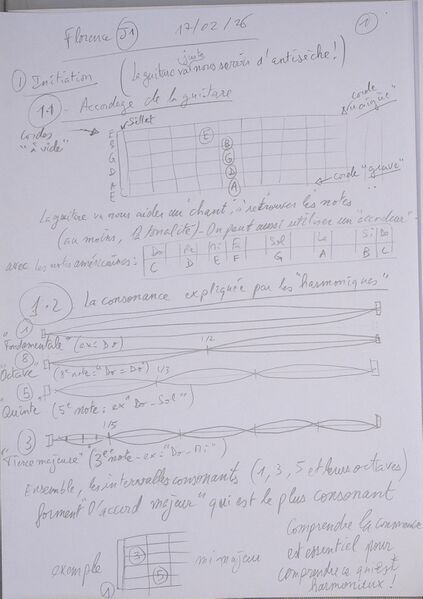 Florence J1 17/02/26 1
① Initiation (La guitare va juste nous servir d'antisèche !)
1.1 - Accordage de la guitare
cordes "à vide"
Sillet
corde "aigüe"
E
B
G
D
A
E
E
B
G
D
A
corde "grave"
La guitare va nous aider au chant, à retrouver les notes
(au moins, la tonalité) - On peut aussi utiliser un "accordeur" -
avec les notes américaines :
Do Ré Mi Fa Sol La Si Do
C D E F G A B C
1.2 La consonance expliquée par les "harmoniques"
1
"Fondamentale" (ex : Do)
8 1/2
"Octave" (8e note = "Do - Do")
5 1/3
"Quinte" (5e note : ex "Do - Sol")
3 1/5
"Tierce majeure" (3e note - ex : "Do - Mi")
Ensemble, les intervalles consonants (1, 3, 5 et leurs octaves)
forment "l'accord majeur" qui est le plus consonant
exemple 3 5 1 mi majeur
Comprendre la consonance
est essentiel pour
comprendre ce qui est
harmonieux !